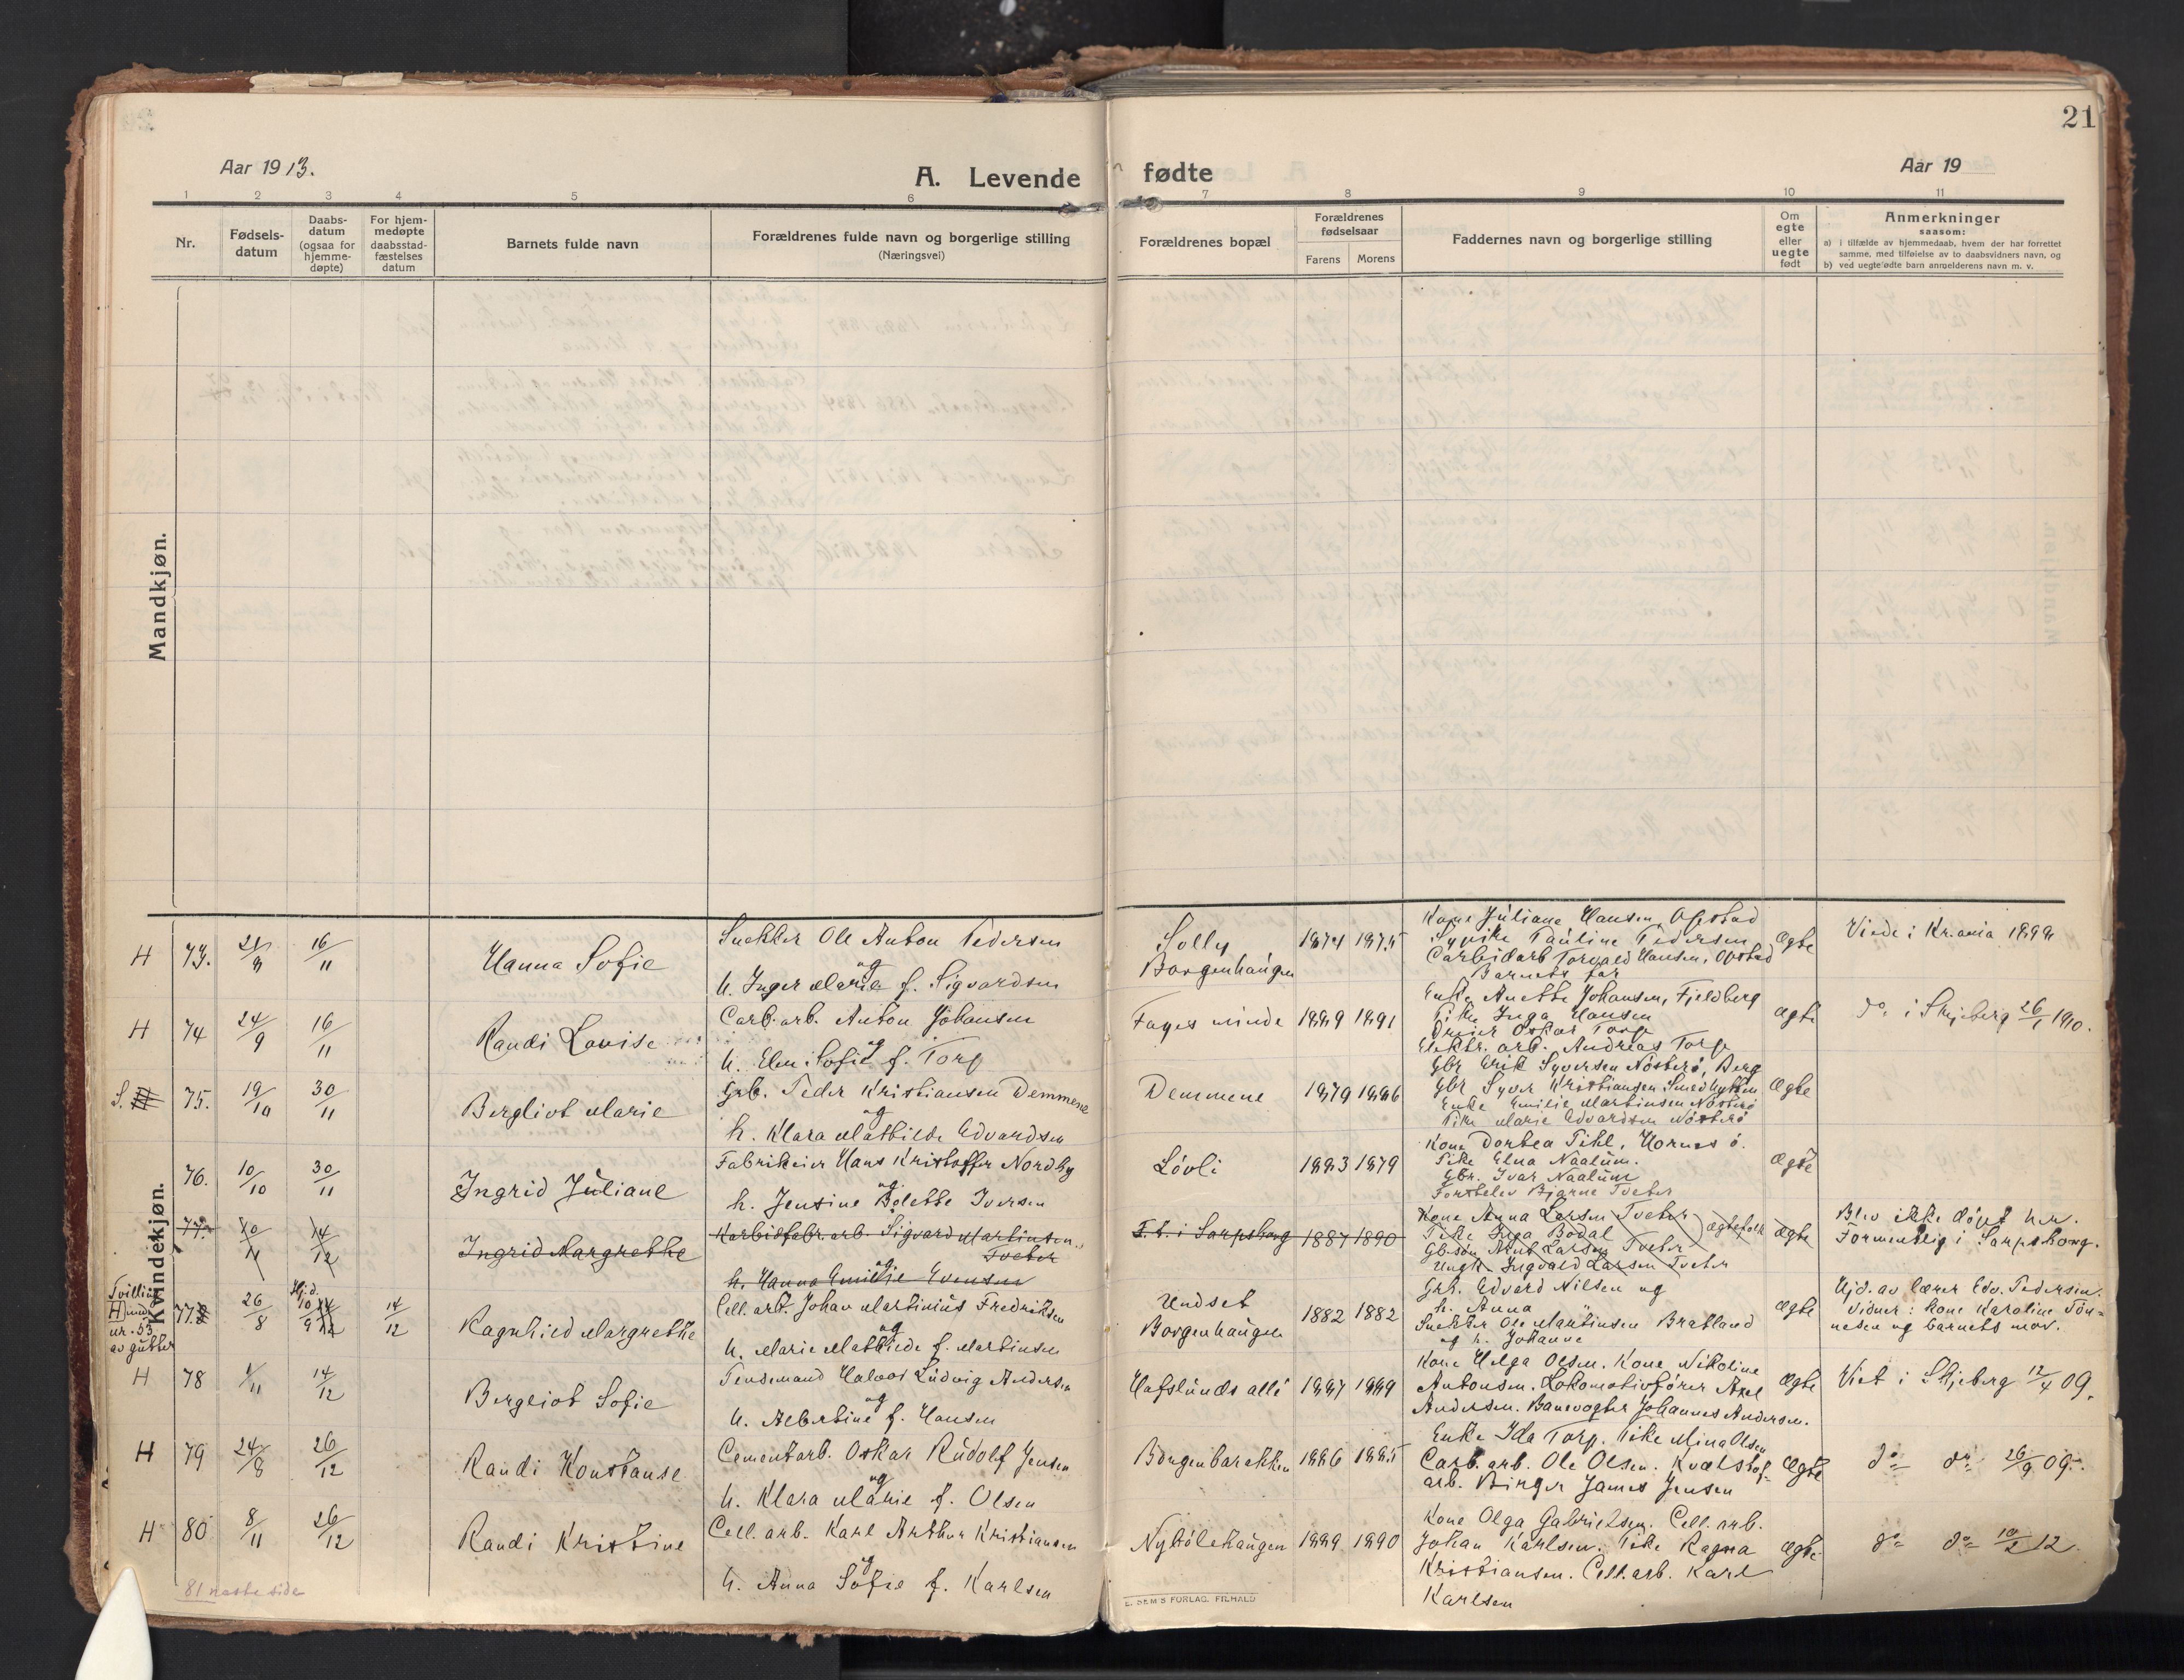 21
Aar 1913.
A. Levende fødte
Aar 19
1 2 3 4 5 6 7 8 9 10 11
Nr.
Fødsels-
datum
Daabs-
datum
(ogsaa for
hjemme-
døpte)
For hjem-
medøpte
daabsstad-
fæstelses
datum
Barnets fulde navn
Forældrenes fulde navn og borgerlige stilling
(Næringsvei)
Forældrenes bopæl
Forældrenes
fødselsaar
Farens Morens
Faddernes navn og borgerlige stilling
Om
egte
eller
uegte
født
Anmerkninger
saasom:
a) i tilfælde av hjemmedaab, hvem der har forrettet
samme, med tilføielse av to daabsvidners navn, og
b) ved uegtefødte barn anmelderens navn m. v.
Mandkjøn.
Kvindekjøn.
H 73. 16/11 Hanna Sofie
Snekker Ole Anton Pedersen
og
h. Inger Marie f. Sigvardsen
Solly
Borgenhaugen
1874 1875
Kone Juliane Hansen, Opstad
Pauline Pedersen
Carbidarb. Torvald Hansen, Opstad
Barnets far
Ægte
Viede i Kr.ania 1899
H 74 24/9 16/11 Randi Lovise
Carb.arb. Anton Johansen
og
h. Elen Sofie f. Torp
Fagesminde 1889 1891
Enke Anette Johansen, Fjeldberg
Pike Inga Hansen
Oskar Torp
Elektr. arb. Andreas Torp
Ægte
do i Skjeberg 26/1 1910.
S. 75. 19/10 30/11 Bergliot Marie
Grb. Peder Kristiansen Demmene
og
h. Klara Mathilde Edvardsen
Demmene 1879 1886
Gbr Erik Syversen Nøsterø, Berg
Gbr Syver Kristiansen Smedhytten
Enke Emilie Martinsen Nøsterø
Pike Marie Edvardsen Nøsterø
Ægte
76. 10/10 30/11 Ingrid Juliane
Fabrikeier Hans Kristoffer Nordby
og
h. Jensine Bolette Iversen
Løvli 1883 1879
Kone Dortea Pihl, Hornes ø.
Pike Elna Naalum.
Gbr. Ivar Naalum
Forstelev Bjarne Tveter
Ægte
77. 14/12 Ingrid Margrethe
Karbidfabr.arb. Sigvard Martinsen
Tveter
og
h. Hanna Emilie Evensen
F. t. i Sarpsborg 1887 1890
Kone Anna Larsen Tveter
Pike Inga Bodal
Gb.søn Knut Larsen Tveter
Ungk. Ingvald Larsen Tveter
Ægtefolk
Ægte
Blev ikke døpt her.
Formentlig i Sarpsborg.
Tvilling
H med
nr. 53
av gutter
77. 26/8 Hj.d. 10/9 14/12 Ragnhild Margrethe
Cell. arb. Johan Martinius Fredriksen
og
h. Marie Mathilde f. Martinsen
Undset
Borgenhaugen
1882 1882
Grb. Edvard Nilsen og
h. Anna
Snekker Ole Martinsen Bratland
og h. Johanne
Ægte
Hjd. av lærer Edv. Pedersen.
Vidner: kone Karoline Tøn-
nesen og barnets mor.
H 78 1/11 14/12 Bergliot Sofie
Pensemand Halvor Ludvig Andersen
og
h. Albertine f. Hansen
Hafslunds allé 1887 1889
Kone Helga Olsen. Kone Nikoline
Antonsen. Lokomotivfører Axel
Andersen. Banevogter Johannes Andersen.
Ægte
Viet i Skjeberg 12/4 09.
H 79 24/8 26/12 Randi Konstanse
Cementarb. Oskar Rudolf Jensen
og
h. Klara Marie f. Olsen
Borgenbarakken 1886 1885
Enke Ida Torp. Pike Mina Olsen
Carb. arb. Ole Olsen. Kvælstof-
arb. Birger James Jensen
Ægte
do do 26/9 09.
H 80 8/11 26/12 Randi Kristine
Cell. arb. Karl Arthur Kristiansen
og
h. Anna Sofie f. Karlsen
Nybølehaugen 1889 1890
Kone Olga Gabrielsen. Cell. arb.
Johan Karlsen. Pike Ragna
Kristiansen. Cell. arb. Karl
Karlsen
Ægte
do do 10/2 12.
81 neste side
E. SEM'S FORLAG. F.HALD